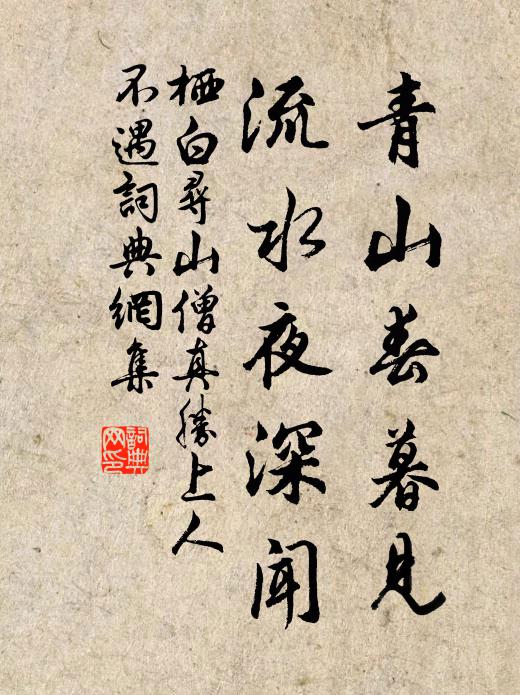 青山春暮見
流水夜深聞
栖白尋山僧真勝上人
不遇詞典網集
詞典网印